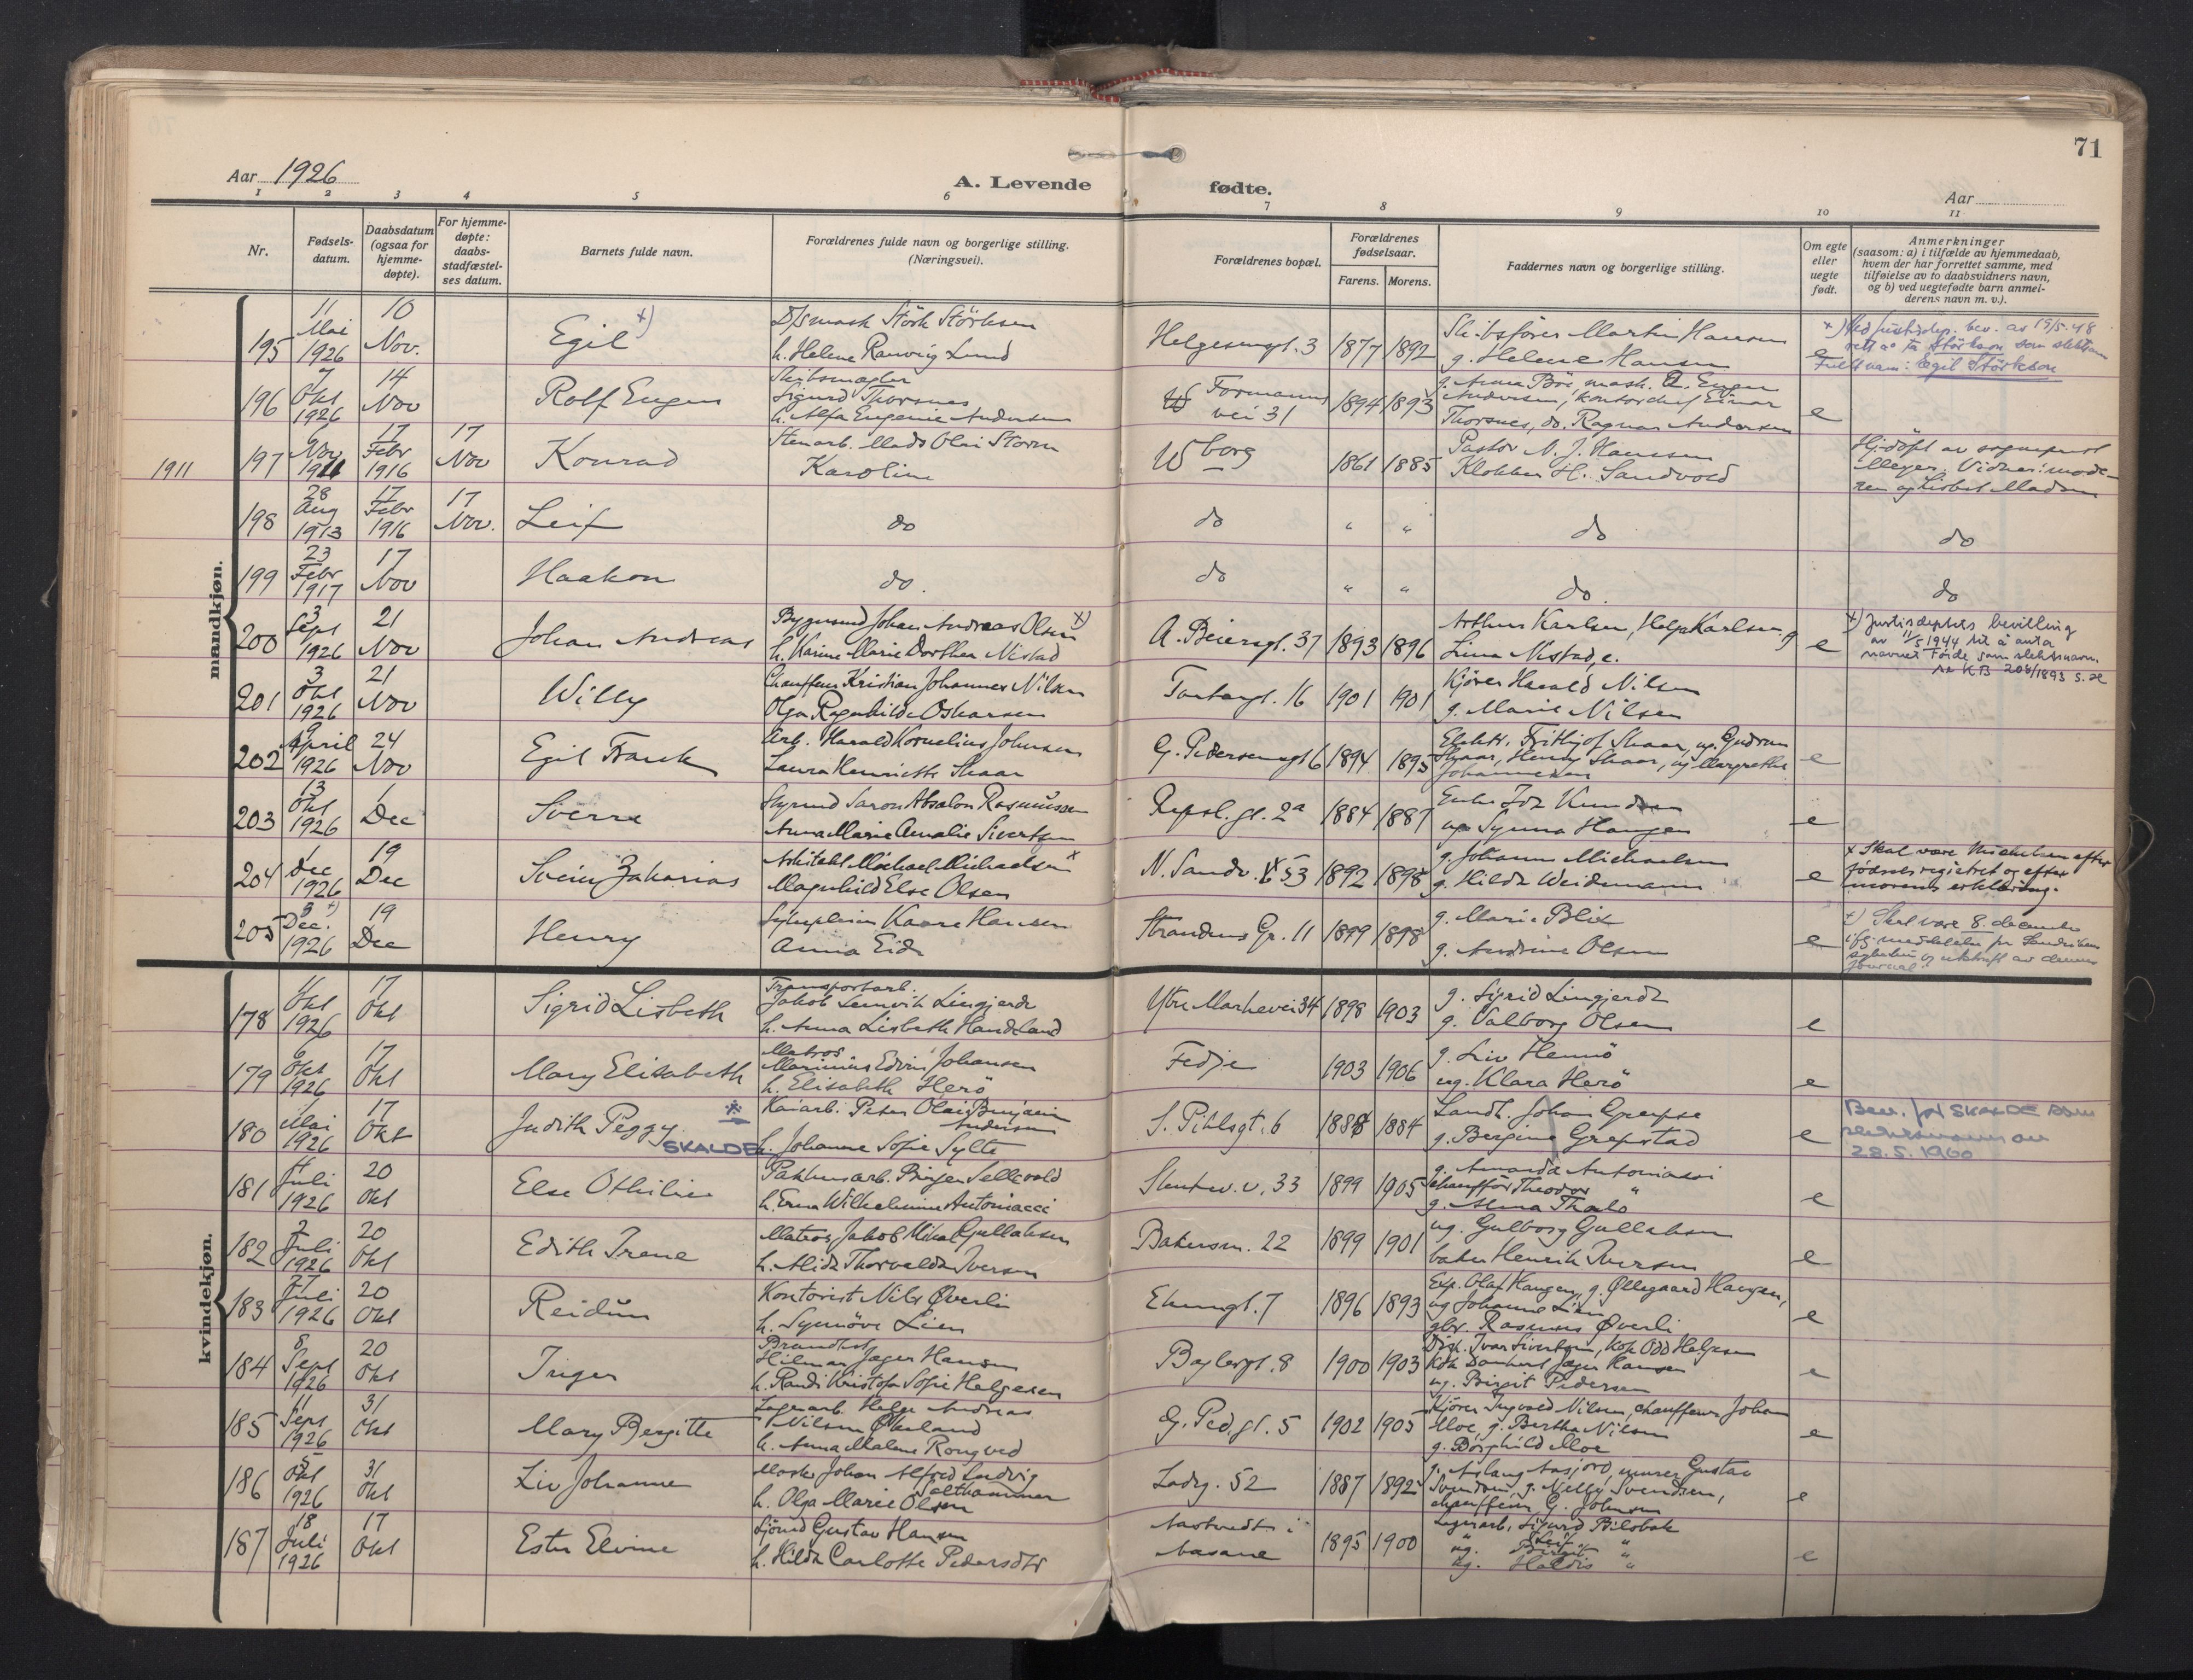 71
Aar 1926
A. Levende fødte.
Aar
1 2 3 4 5 6 7 8 9 10 11
Nr.
Fødsels-
datum.
Daabsdatum
(ogsaa for
hjemme-
døpte).
For hjemme-
døpte:
daabs-
stadfæstel-
ses datum.
Barnets fulde navn.
Forældrenes fulde navn og borgerlige stilling.
(Næringsvei).
Forældrenes bopæl.
Forældrenes
fødselsaar.
Farens. Morens.
Faddernes navn og borgerlige stilling.
Om egte
eller
uegte
født.
Anmerkninger
(saasom: a) i tilfælde av hjemmedaab,
hvem der har forrettet samme, med
tilføielse av to daabsvidners navn,
og b) ved uegtefødte barn anmel-
derens navn m. v.).
mandkjøn.
195
11 Mai 1926
10 Nov.
Egil x)
D/S mask Störk Störksen
h. Helene Ranvig Lund
Helgesensgt. 3
1877 1892
Skibsfører Martin Hansen
g. Helene Hansen
e
x) Ved justisdep. bev. av 15/5-48
rett å ta Störkson som slektsnavn
Fullt navn: Egil Störkson
196
7 Okt 1926
14 Nov
Rolf Eugen
Skibsmægler
Sigurd Thorsnes
h. Alfa Eugenie Andersen
Formanns
vei 31
1894 1893
g. Anna Böe, mask. Eugen
Andersen, kontorchef Einar
Thorsnes, do. Ragnar Andersen
e
1911
197
Nov 1911
17 Febr 1916
17 Nov
Konrad
Stenarb. Mads Olai Storm
Karoline
Wborg
1861 1885
Pastor N. J. Hanssen
Klokker H. Sandvold
Hj. döpt av sogneprest
Meyer. Vidner: mode-
ren og Lisbet Madsen
198
28 Aug 1913
17 Febr 1916
17 Nov.
Leif
do
do
" "
do
do
199
23 Febr 1917
17 Nov
Haakon
do.
do
" "
do.
do
200
3 Sept 1926
21 Nov
Johan Andreas
Bygmsvend Johan Andreas Olsen x)
h. Karine Marie Dorthea Nistad
A. Beiersgt. 37
1893 1896
Arthur Karlsen, Helga Karlsen g
Lina Nistad, e.
e
x) Justisdeptets bevilling
av 11/5 1944 til å anta
navnet Förde som slektsnavn.
se KB 208/1893 s. 22
201
3 Okt 1926
21 Nov
Willy
Chauffeur Kristian Johannes Nilsen
Olga Ragnhilda Oskarsen
1901 1901
Kjører Harald Nilsen
g. Marie Nilsen
202
9 April 1926
24 Nov
Egil Frank
Arb. Harald Kornelius Johnsen
Laura Henriette Skaar
G. Pedersensgt 6
1894 1895
Elektr. Frithjof Skaar, ug. Gudrun
Skaar, Henry Skaar, ug Margrethe
Johannesen
e
203
13 Okt 1926
1 Dec
Sverre
Styrmd Saron Absalon Rasmussen
Anna Marie Amalie Sivertsen
Repsl. gt. 2a
1884 1887
Enke Ida Knudsen
ug Synna Haugen
e
204
1 Dec 1926
19 Dec
Svein Zakarias
Arkitekt Michael Michaelsen x
Magnhild Else Olsen
N. Sandv. v 53
1892 1898
g. Johanne Michaelsen
g. Hilda Weidemann
e
x Skal være Michelsen efter
fødselsregistret og efter
morens erklæring.
205
9 Dec. x) 1926
19 Dec
Henry
Kaare Hansen
Anna Eide
Strandens Gr. 11
1899 1898
g. Marie Blix
g. Andrine Olsen
e
x) Skal være 8. december
ifg. meddelelse fra Sandvikens
sykehus og utskrift av dennes
journal.
kvindekjøn.
178
11 Okt 1926
17 Okt
Sigrid Lisbeth
Transportarb.
Jakob Lemvik Lingjerde
h. Anna Lisbeth Handeland
Ytre Markevei 34
1898 1903
g. Sigrid Lingjerde
g. Valborg Olsen
e
179
6 Okt 1926
17 Okt
Mary Elisabeth
Matros
Marinius Edvin Johansen
h. Elisabeth Herö
Fedje
1903 1906
g. Liv Hennö
ug. Klara Herö
e
180
1 Mai 1926
17 Okt
Judith Peggy
SKALDE
Kaiarb. Peter Olai Benjamin
Andersen
h. Johanne Sofie Sylte
S. Pihlsgt. 6
1884 1884
Landh. Johan Grepse
g. Bergine Grepstad
e
Bev. for SKALDE som
slektsnavn av
28.5.1960
181
4 Juli 1926
20 Okt
Else Othilie
Pakhusarb. Birger Sellevold
h. Erna Wilhelmine Antoniacci
Slentw. v. 33
1899 1905
g. Amanda Antoniacci
chauffør Theodor "
g. Alma Thalo
e
182
2 Juli 1926
20 Okt
Edith Irene
Matros Jakob Mikal Gullaksen
h. Alida Thorvalda Iversen
Bakersm. 22
1899 1901
ug. Gulborg Gullaksen
baker Henrik Iversen
e
183
27 Juli 1926
20 Okt
Reidun
Kontorist Nils Øverli
h. Synnöve Lien
Ekrengt. 7
1896 1893
Exp. Olaf Haugen, g. Øllegaard Haugen,
ug Johanne Lien
gbr. Rasmus Øverli
e
184
8 Sept 1926
20 Okt
Inger
Brandkst
Hilmar Jager Hansen
h. Randi Kristofa Sofie Helgesen
Baglergt. 8
1900 1903
Disp. Ivar Sivertsen, kok Odd Helgesen
kok Dankert Jager Hansen
ug. Birgit Pedersen
e
185
11 Sept 1926
31 Okt
Mary Bergitte
Lagerarb. Helge Andreas
Nilsen Økland
h. Anna Malene Rongved
G. Ped. gt. 5
1902 1905
Kjører Ingvald Nilsen, chauffeur Johan
Moe, g. Bertha Nilsen
g. Borghild Moe
e
186
5 Okt 1926
31 Okt
Liv Johanne
Mask Johan Alfred Ludvig
Salthammer
h. Olga Marie Olsen
Ladeg. 52
1887 1892
g. Aslaug Aasjord, murer Gustav
Svendsen, g. Nelly Svendsen,
chauffeur G. Johnsen
e
187
18 Juli 1926
17 Okt
Ester Elvine
Sjömd Gustav Hansen
h. Hilda Carlotte Pedersdtr
Aastvedt i
Aasane
1895 1900
Lagerarb. Sigurd Bilobak
ug. Birgit "
ug. Haldis "
e